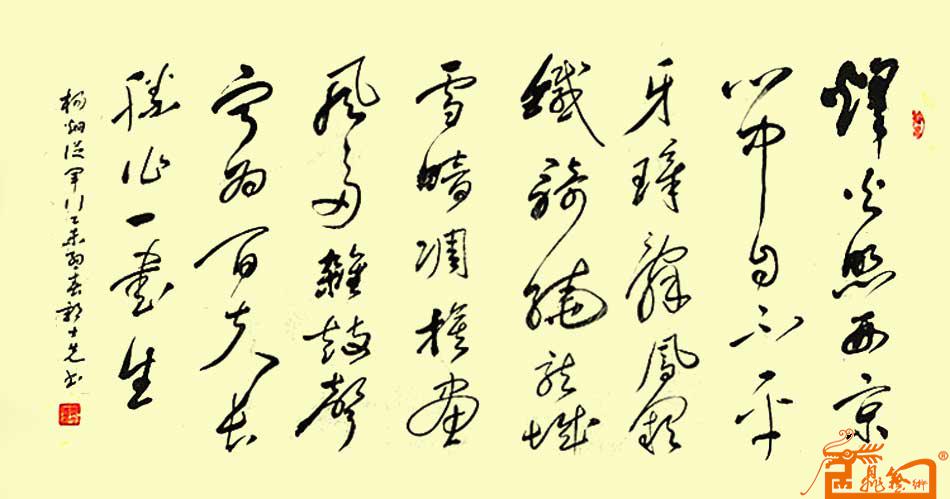 烽火照西京
心中自不平
牙璋辭鳳闕
鐵騎繞龍城
雪暗凋旗画
風多雜鼓聲
寧为百夫长
勝作一書生
楊炯從軍行乙未春